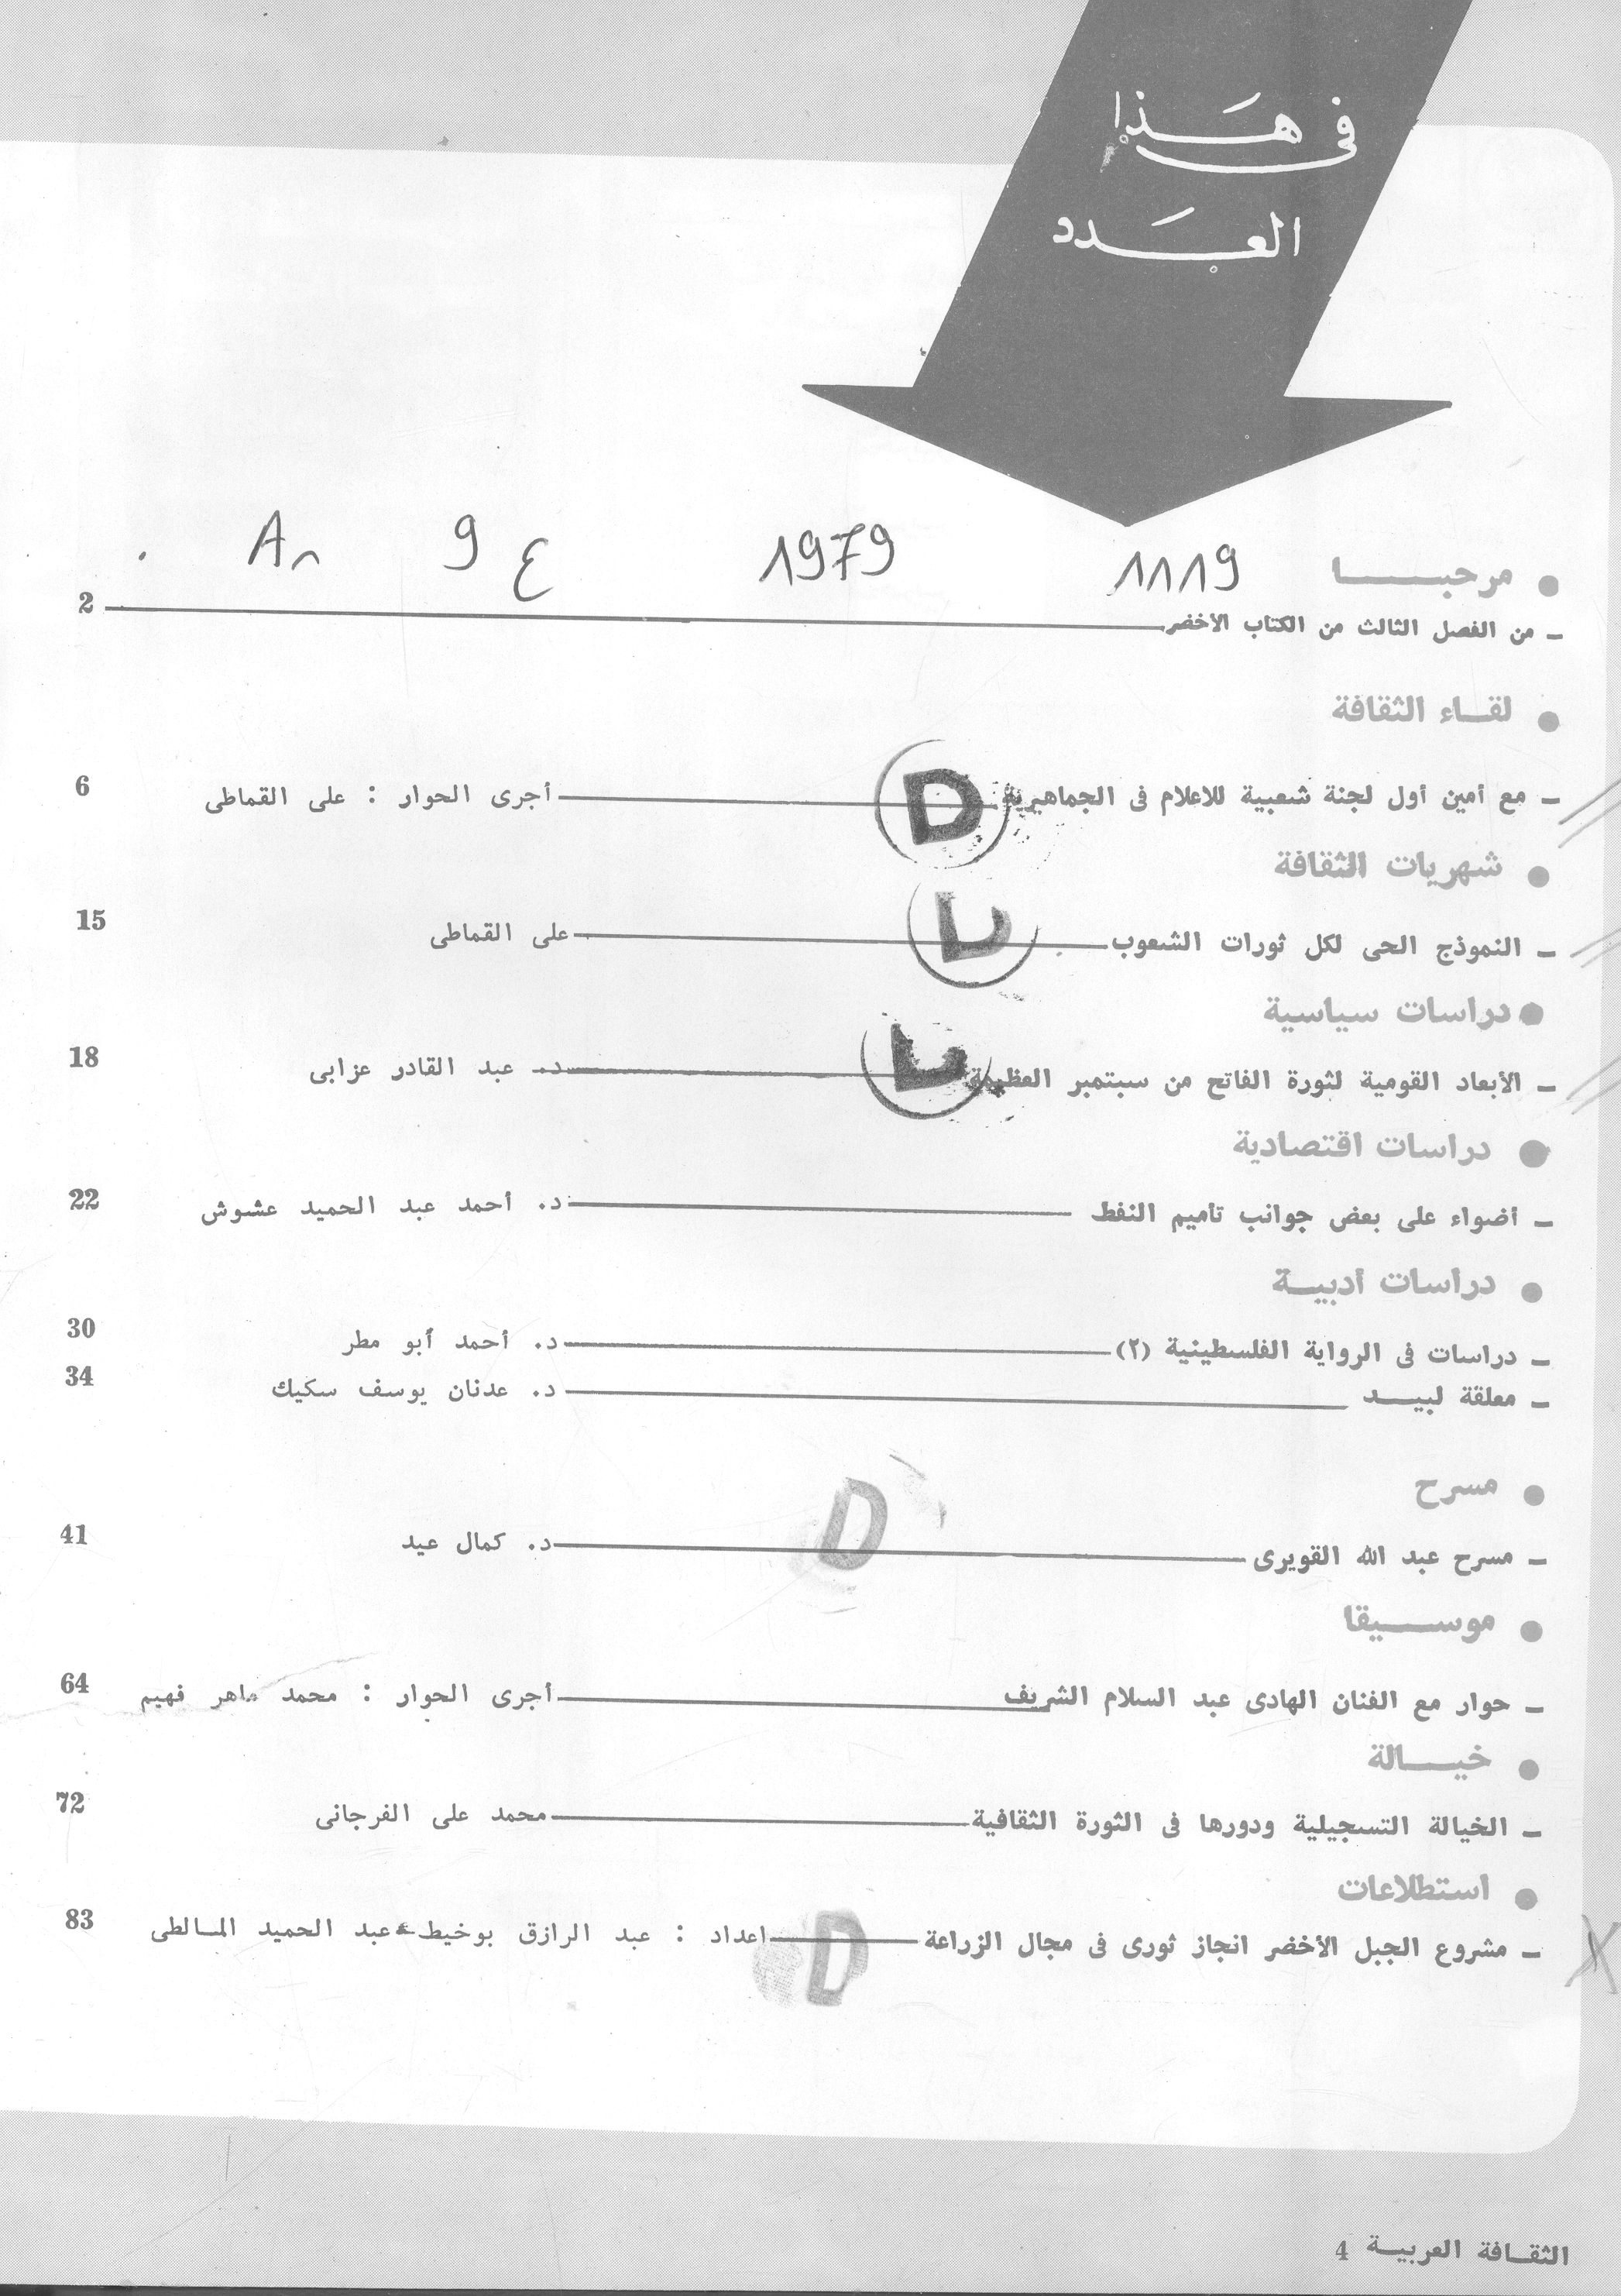 في هذا
العدد
1119 1979 9 ع An
● مرحبا
ـ من الفصل الثالث من الكتاب الأخضر 2
● لقاء الثقافة
ـ مع أمين أول لجنة شعبية للاعلام فى الجماهيرية أجرى الحوار : على القماطى 6
D
● شهريات الثقافة
ـ النموذج الحى لكل ثورات الشعوب على القماطى 15
● دراسات سياسية
ـ الأبعاد القومية لثورة الفاتح من سبتمبر العظيمة د. عبد القادر عزابى 18
● دراسات اقتصادية
ـ أضواء على بعض جوانب تأميم النفط د. أحمد عبد الحميد عشوش 22
● دراسات أدبية
ـ دراسات فى الرواية الفلسطينية (٢) د. أحمد أبو مطر 30
ـ معلقة لبيد د. عدنان يوسف سكيك 34
● مسرح
D
ـ مسرح عبد الله القويرى د. كمال عيد 41
● موسيقا
ـ حوار مع الفنان الهادى عبد السلام الشريف أجرى الحوار : محمد ماهر فهيم 64
● خيالة
ـ الخيالة التسجيلية ودورها فى الثورة الثقافية محمد على الفرجانى 72
● استطلاعات
ـ مشروع الجبل الأخضر انجاز ثورى فى مجال الزراعة اعداد : عبد الرازق بوخيط عبد الحميد المالطى 83
D
الثقافة العربية 4